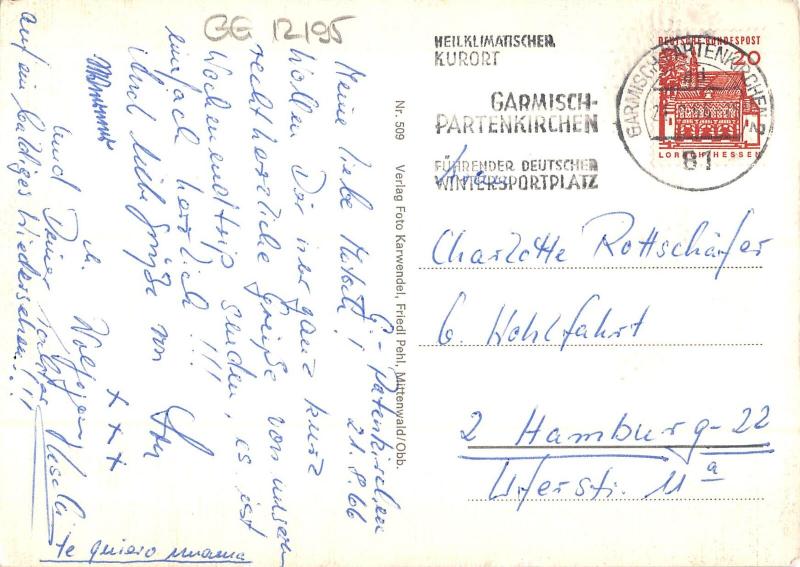 GG 12195
G.-Patenkirchen
21.8.66
Meine liebe Mutsch!
Wollen Dir nur ganz kurz
recht herzliche Grüße von unserm
Wochenendtrip senden, es ist
einfach herrlich!!!
Und liebe Grüße von
Wolfgang
x x x
und Deiner Tochter
auf ein baldiges Wiedersehen!!!
te quiero mama
Nr. 509 Verlag Foto Karwendel, Friedl Pehl, Mittenwald/Obb.
HEILKLIMATISCHER
KURORT
GARMISCH-
PARTENKIRCHEN
FÜHRENDER DEUTSCHER
WINTERSPORTPLATZ
DEUTSCHE BUNDESPOST
20
LORSCH/HESSEN
GARMISCH-PARTENKIRCHEN 2
81
Charlotte Rottschäfer
b. Wohlfahrt
2 Hamburg-22
Uferstr. 11a